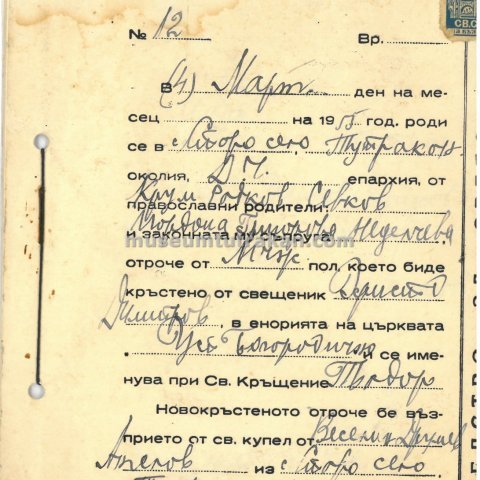 № 12 Вр.
СВ. С
В (4) Март ден на ме-
сец на 1955 год. роди
се в с. Старо село, Тутракан
околия, Д.Ч. епархия, от
Крум Савков
православни родители
Йордана Григорова Неделчева
и законната му съпруга
museumtutrakan.com
отроче от Мъж. пол, което биде
кръстено от свещеник
Димитров, в енорията на църквата
Усп. Богородично и се име-
нува при Св. Кръщение Тодор
Новокръстеното отроче бе въз-
прието от св. купел от Веселин
Ангелов из с. Старо село